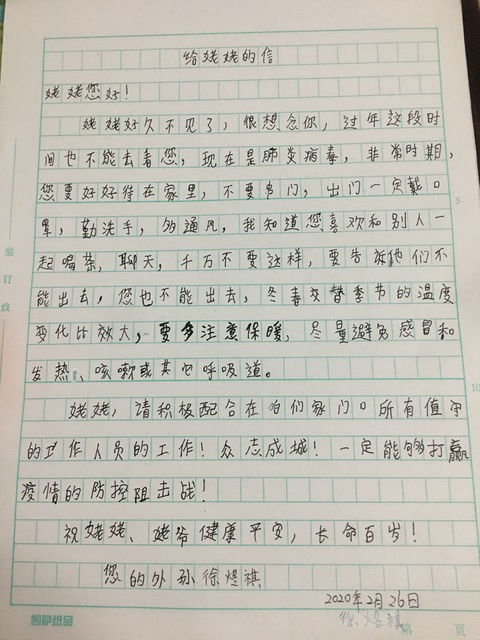 给姥姥的信
姥姥您好！
姥姥好久不见了，很想念你，过年这段时
间也不能去看您，现在是肺炎病毒，非常时期，
您要好好待在家里，不要串门，出门一定戴口
罩，勤洗手，多通风，我知道您喜欢和别人一
起喝茶，聊天，千万不要这样，要告诉他们不
能出去，您也不能出去，冬春交替季节的温度
变化比效大，要多注意保暖，尽量避免感冒和
发热、咳嗽或其它呼吸道。
姥姥，请积极配合在咱们家门口所有值守
的工作人员的工作！众志成城！一定能够打赢
疫情的防控阻击战！
祝姥姥、姥爷健康平安，长命百岁！
您的外孙徐煜祺
2020年2月26日
徐煜祺
凯萨纸品
第 页
装订线
5
10